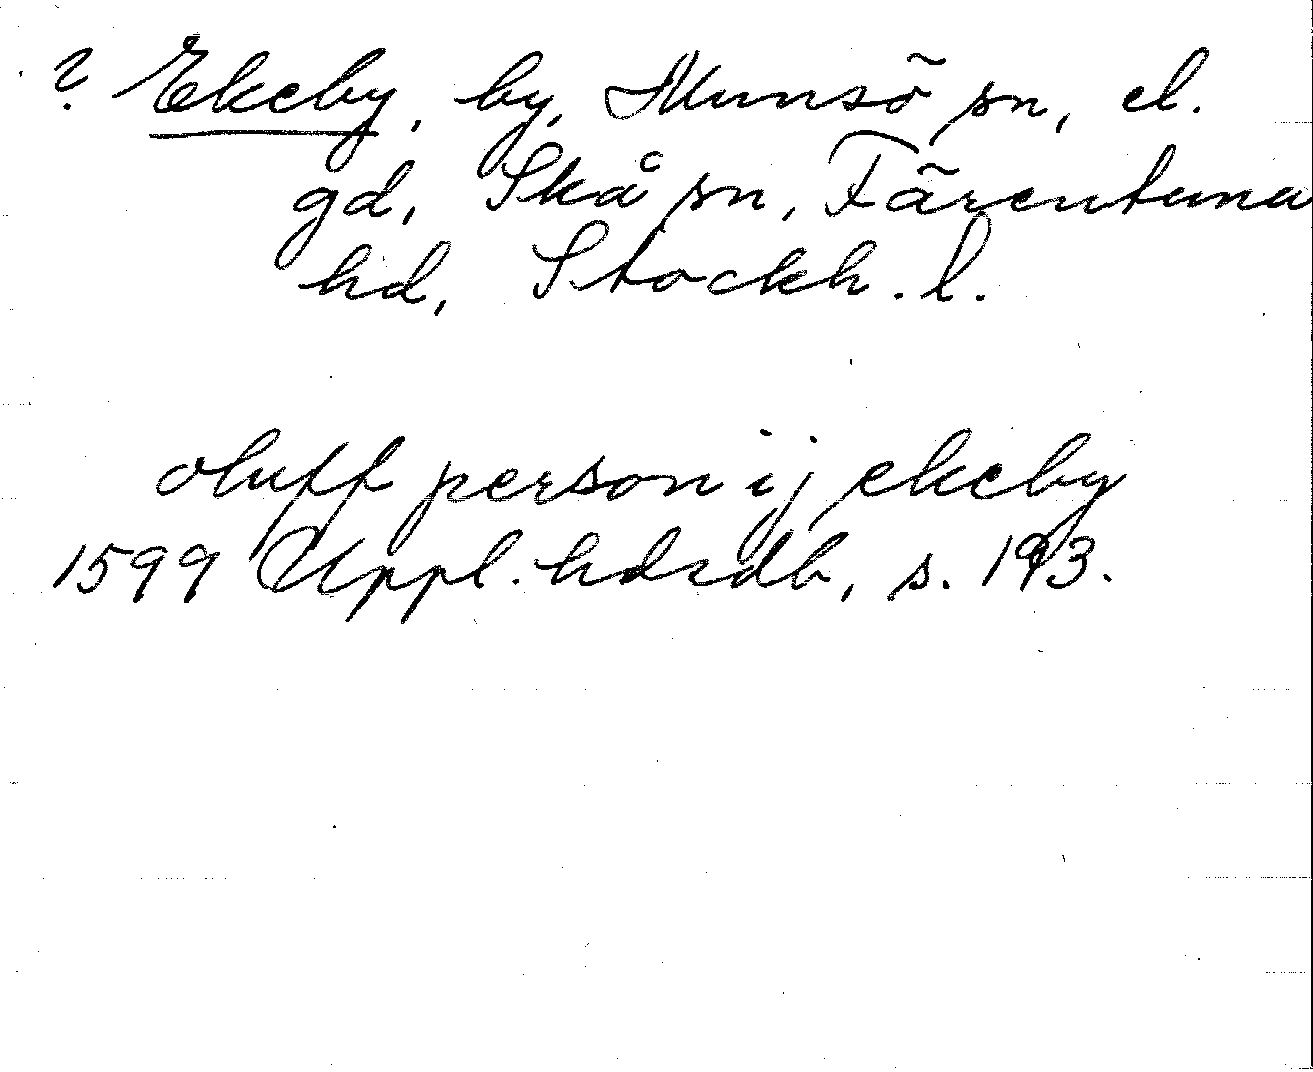 ? Ekeby, by, Munsö sn, el.
gd, Skå sn, Färentuna
hd, Stockh. l.
oluff person ij ekeby
1599 Uppl. hdrdb, s. 193.